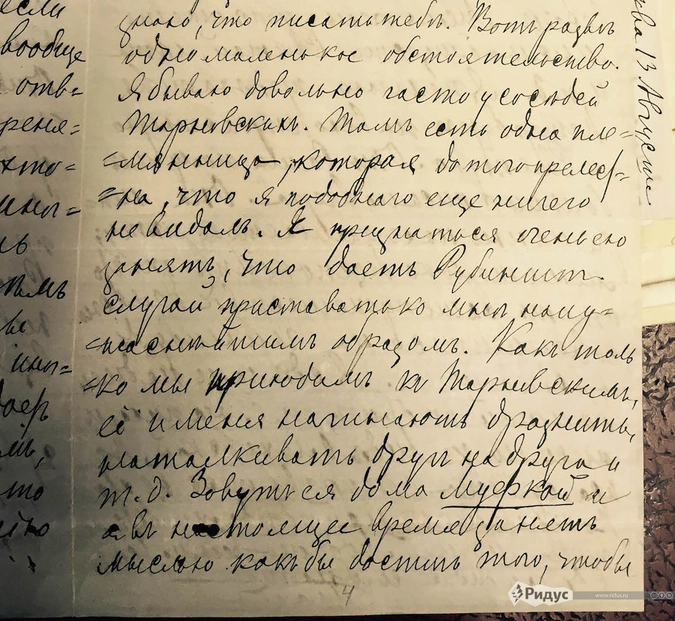 знаю, что писать тебѣ. Вотъ развѣ
одно маленькое обстоятельство.
Я бываю довольно часто у сосѣдей
Тарновскихъ. Тамъ есть одна пле=
=мянница, которая до того прелес=
=на, что я подобнаго еще ничего
не видалъ. Я признаться очень ею
занятъ, что даетъ Рубиншт.
случай приставать ко мнѣ наиу=
=жаснѣйшимъ образомъ. Какъ толь
=ко мы приходимъ къ Тарновскимъ,
её и меня начинаютъ дразнить,
наталкивать другъ на друга и
т.д. Зовутъ ея дома Муфкой и
я въ настоящее время занятъ
мыслью какъ бы достичь того, чтобы
4
если
вообще
отв=
реня=
кто=
мног=
ква 13 Августа
Ридус
www.ridus.ru